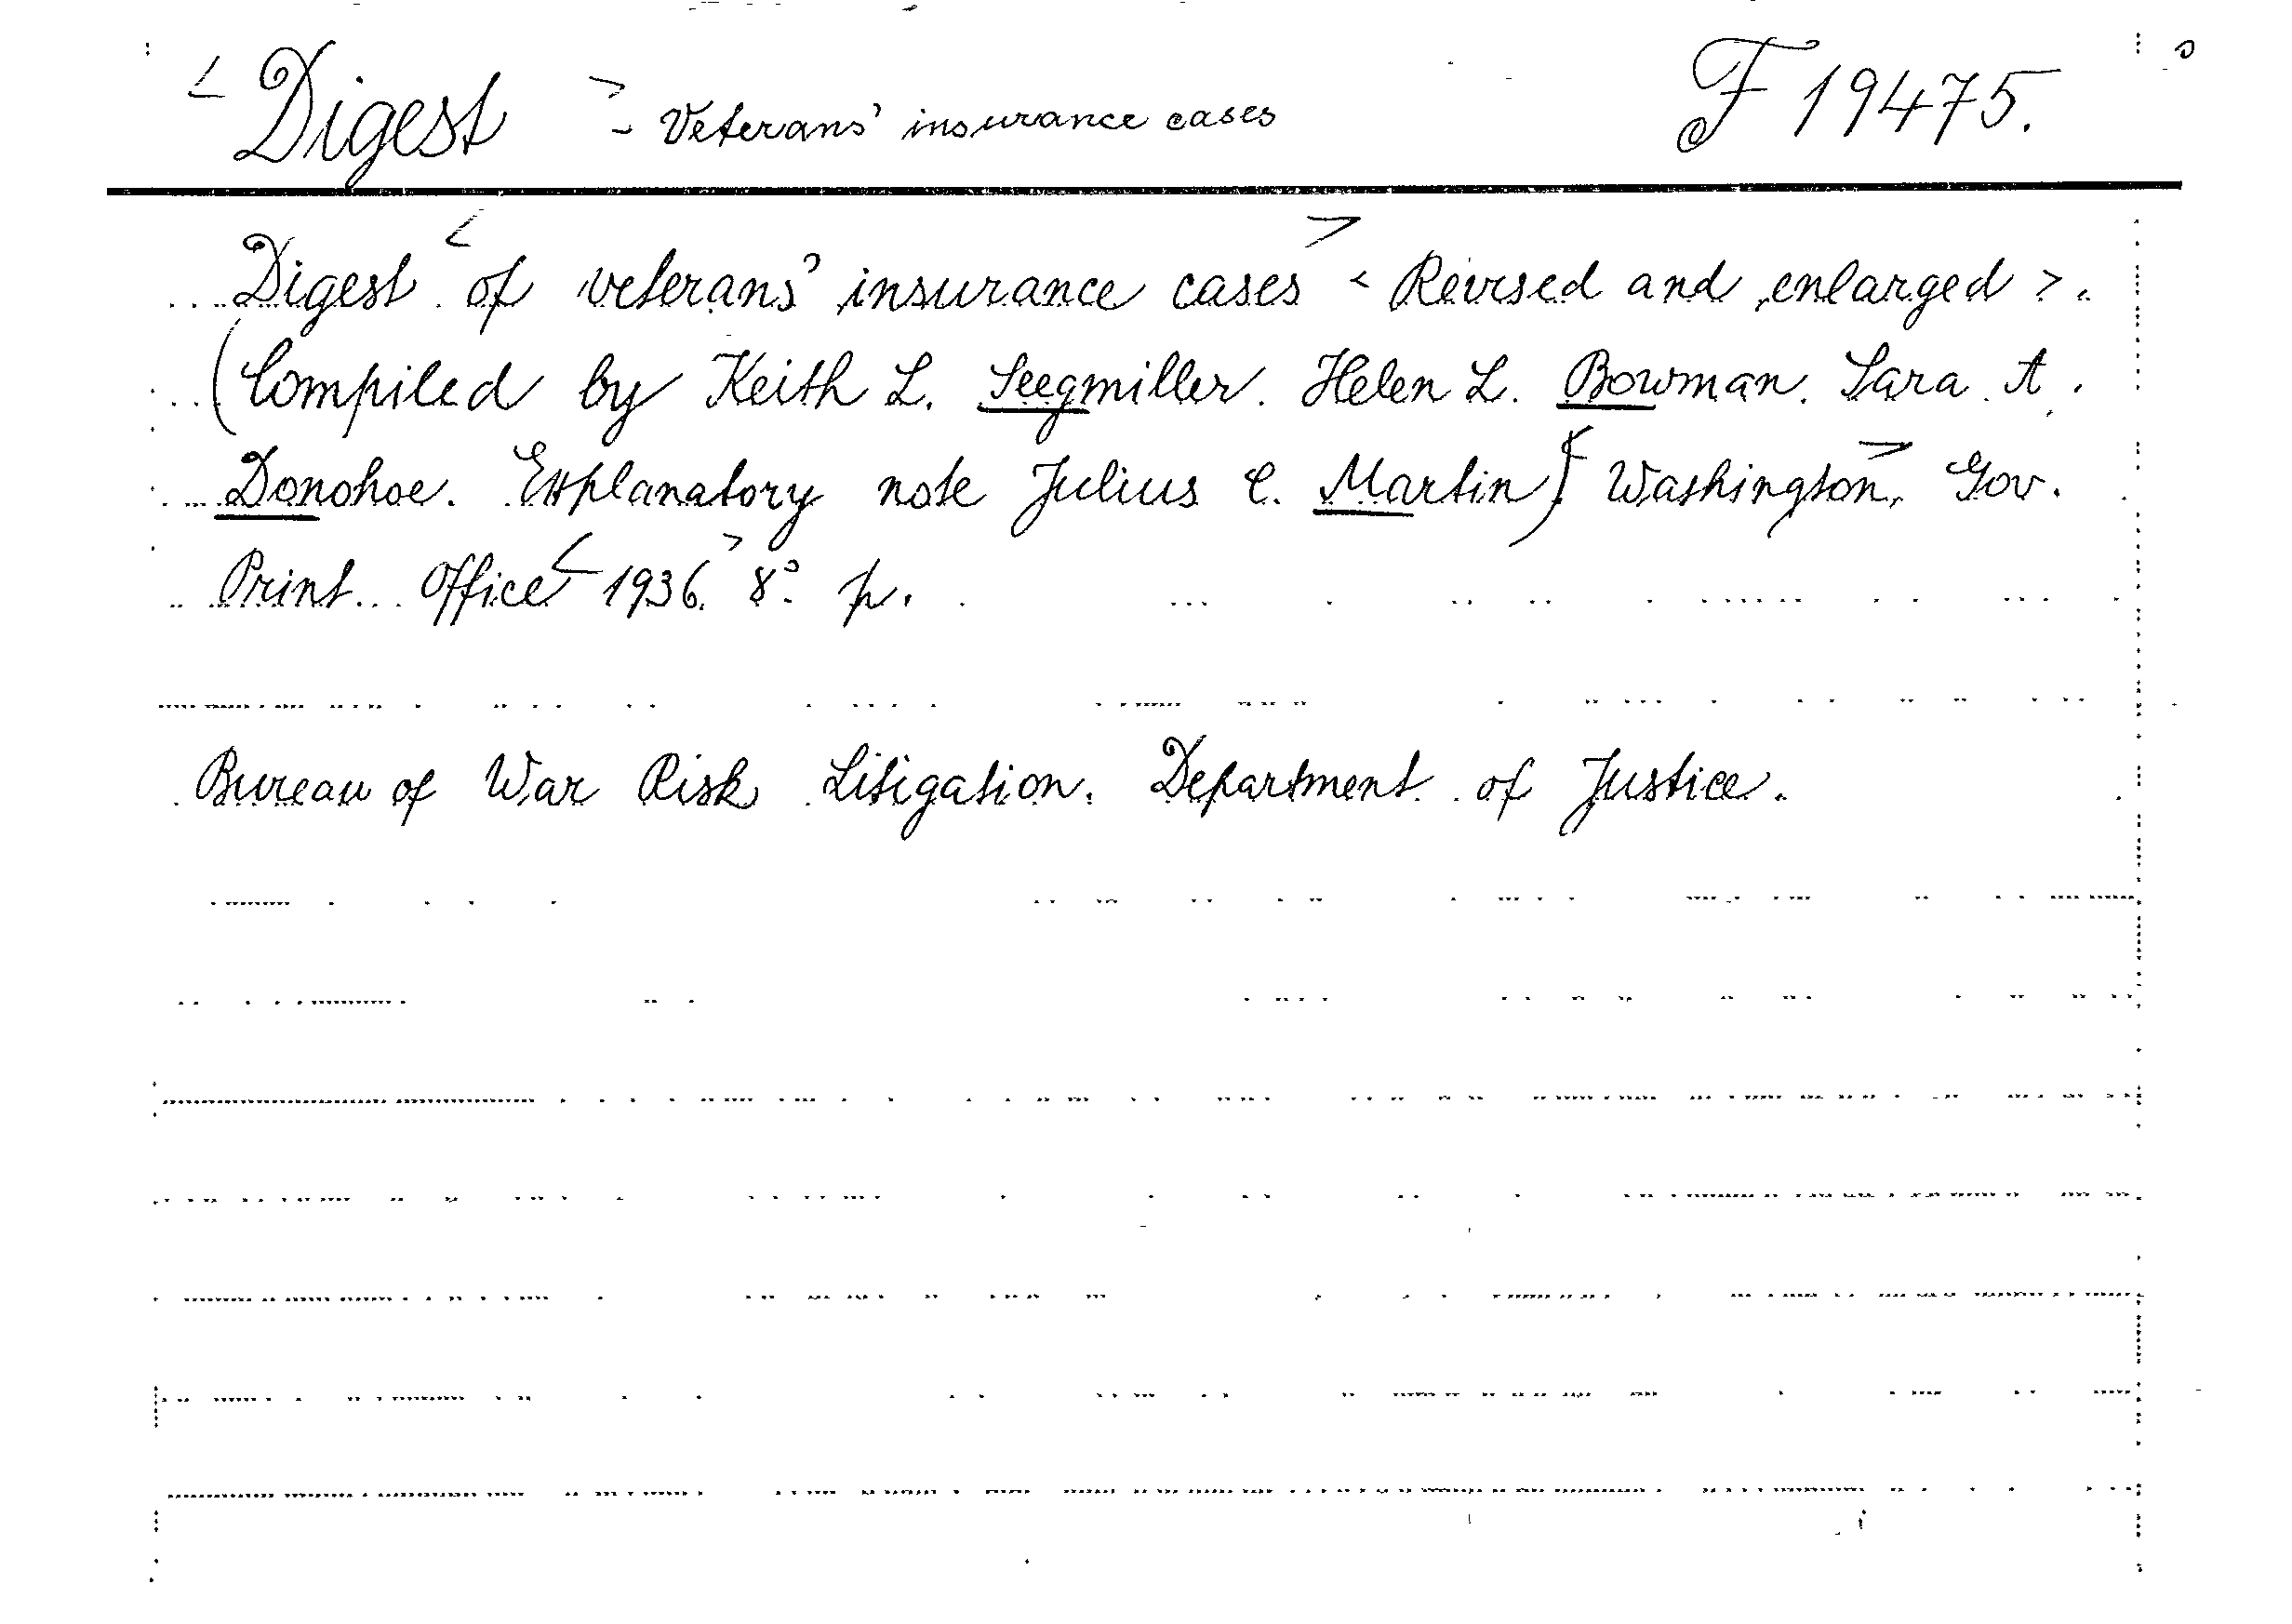 < Digest > - Veterans' insurance cases F 19475.
Digest < of veterans' insurance cases > < Revised and enlarged >.
(Compiled by Keith L. Seegmiller. Helen L. Bowman. Sara A.
Donohoe. Explanatory note Julius C. Martin) Washington, Gov.
Print. Office < 1936. > 8° p.
Bureau of War Risk Litigation. Department of Justice.